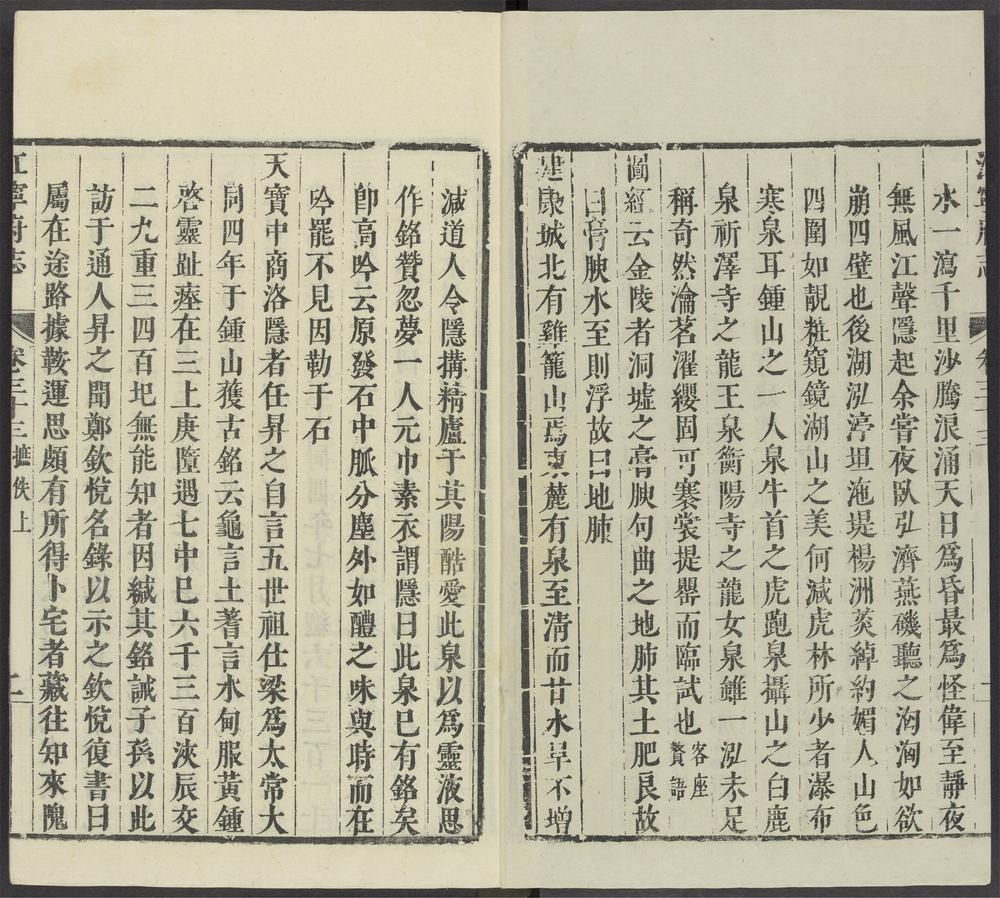 水一瀉千里沙騰浪涌天日爲昏最爲怪偉至靜夜
無風江聲隱起余嘗夜臥弘濟燕磯聽之洶洶如欲
崩四壁也後湖泓渟坦迤堤楊洲菼綽約媚人山色
四圍如靚粧窺鏡湖山之美何減虎林所少者瀑布
寒泉耳鍾山之一人泉牛首之虎跑泉攝山之白鹿
泉祈澤寺之龍王泉衡陽寺之龍女泉雖一泓未足
稱奇然瀹茗濯纓固可褰裳提罌而臨試也客座贅語
圖經云金陵者洞墟之膏腴句曲之地肺其土肥良故
曰膏腴水至則浮故曰地肺
建康城北有雞籠山焉東麓有泉至淸而甘水旱不增
減道人令隱搆精廬于其陽酷愛此泉以爲靈液思
作銘贊忽夢一人元巾素衣謂隱曰此泉已有銘矣
卽高吟云原發石中脈分塵外如醴之味與時而在
吟罷不見因勒于石
天寶中商洛隱者任昇之自言五世祖仕梁爲太常大
同四年于鍾山獲古銘云龜言土蓍言水甸服黃鍾
啓靈趾瘞在三上庚墮遇七中巳六千三百浹辰交
二九重三四百圯無能知者因緘其銘誡子孫以此
訪于通人昇之聞鄭欽悅名錄以示之欽悅復書曰
屬在途路據鞍運思頗有所得卜宅者藏往知來隗
江寧府志
卷三十三摭佚上
二